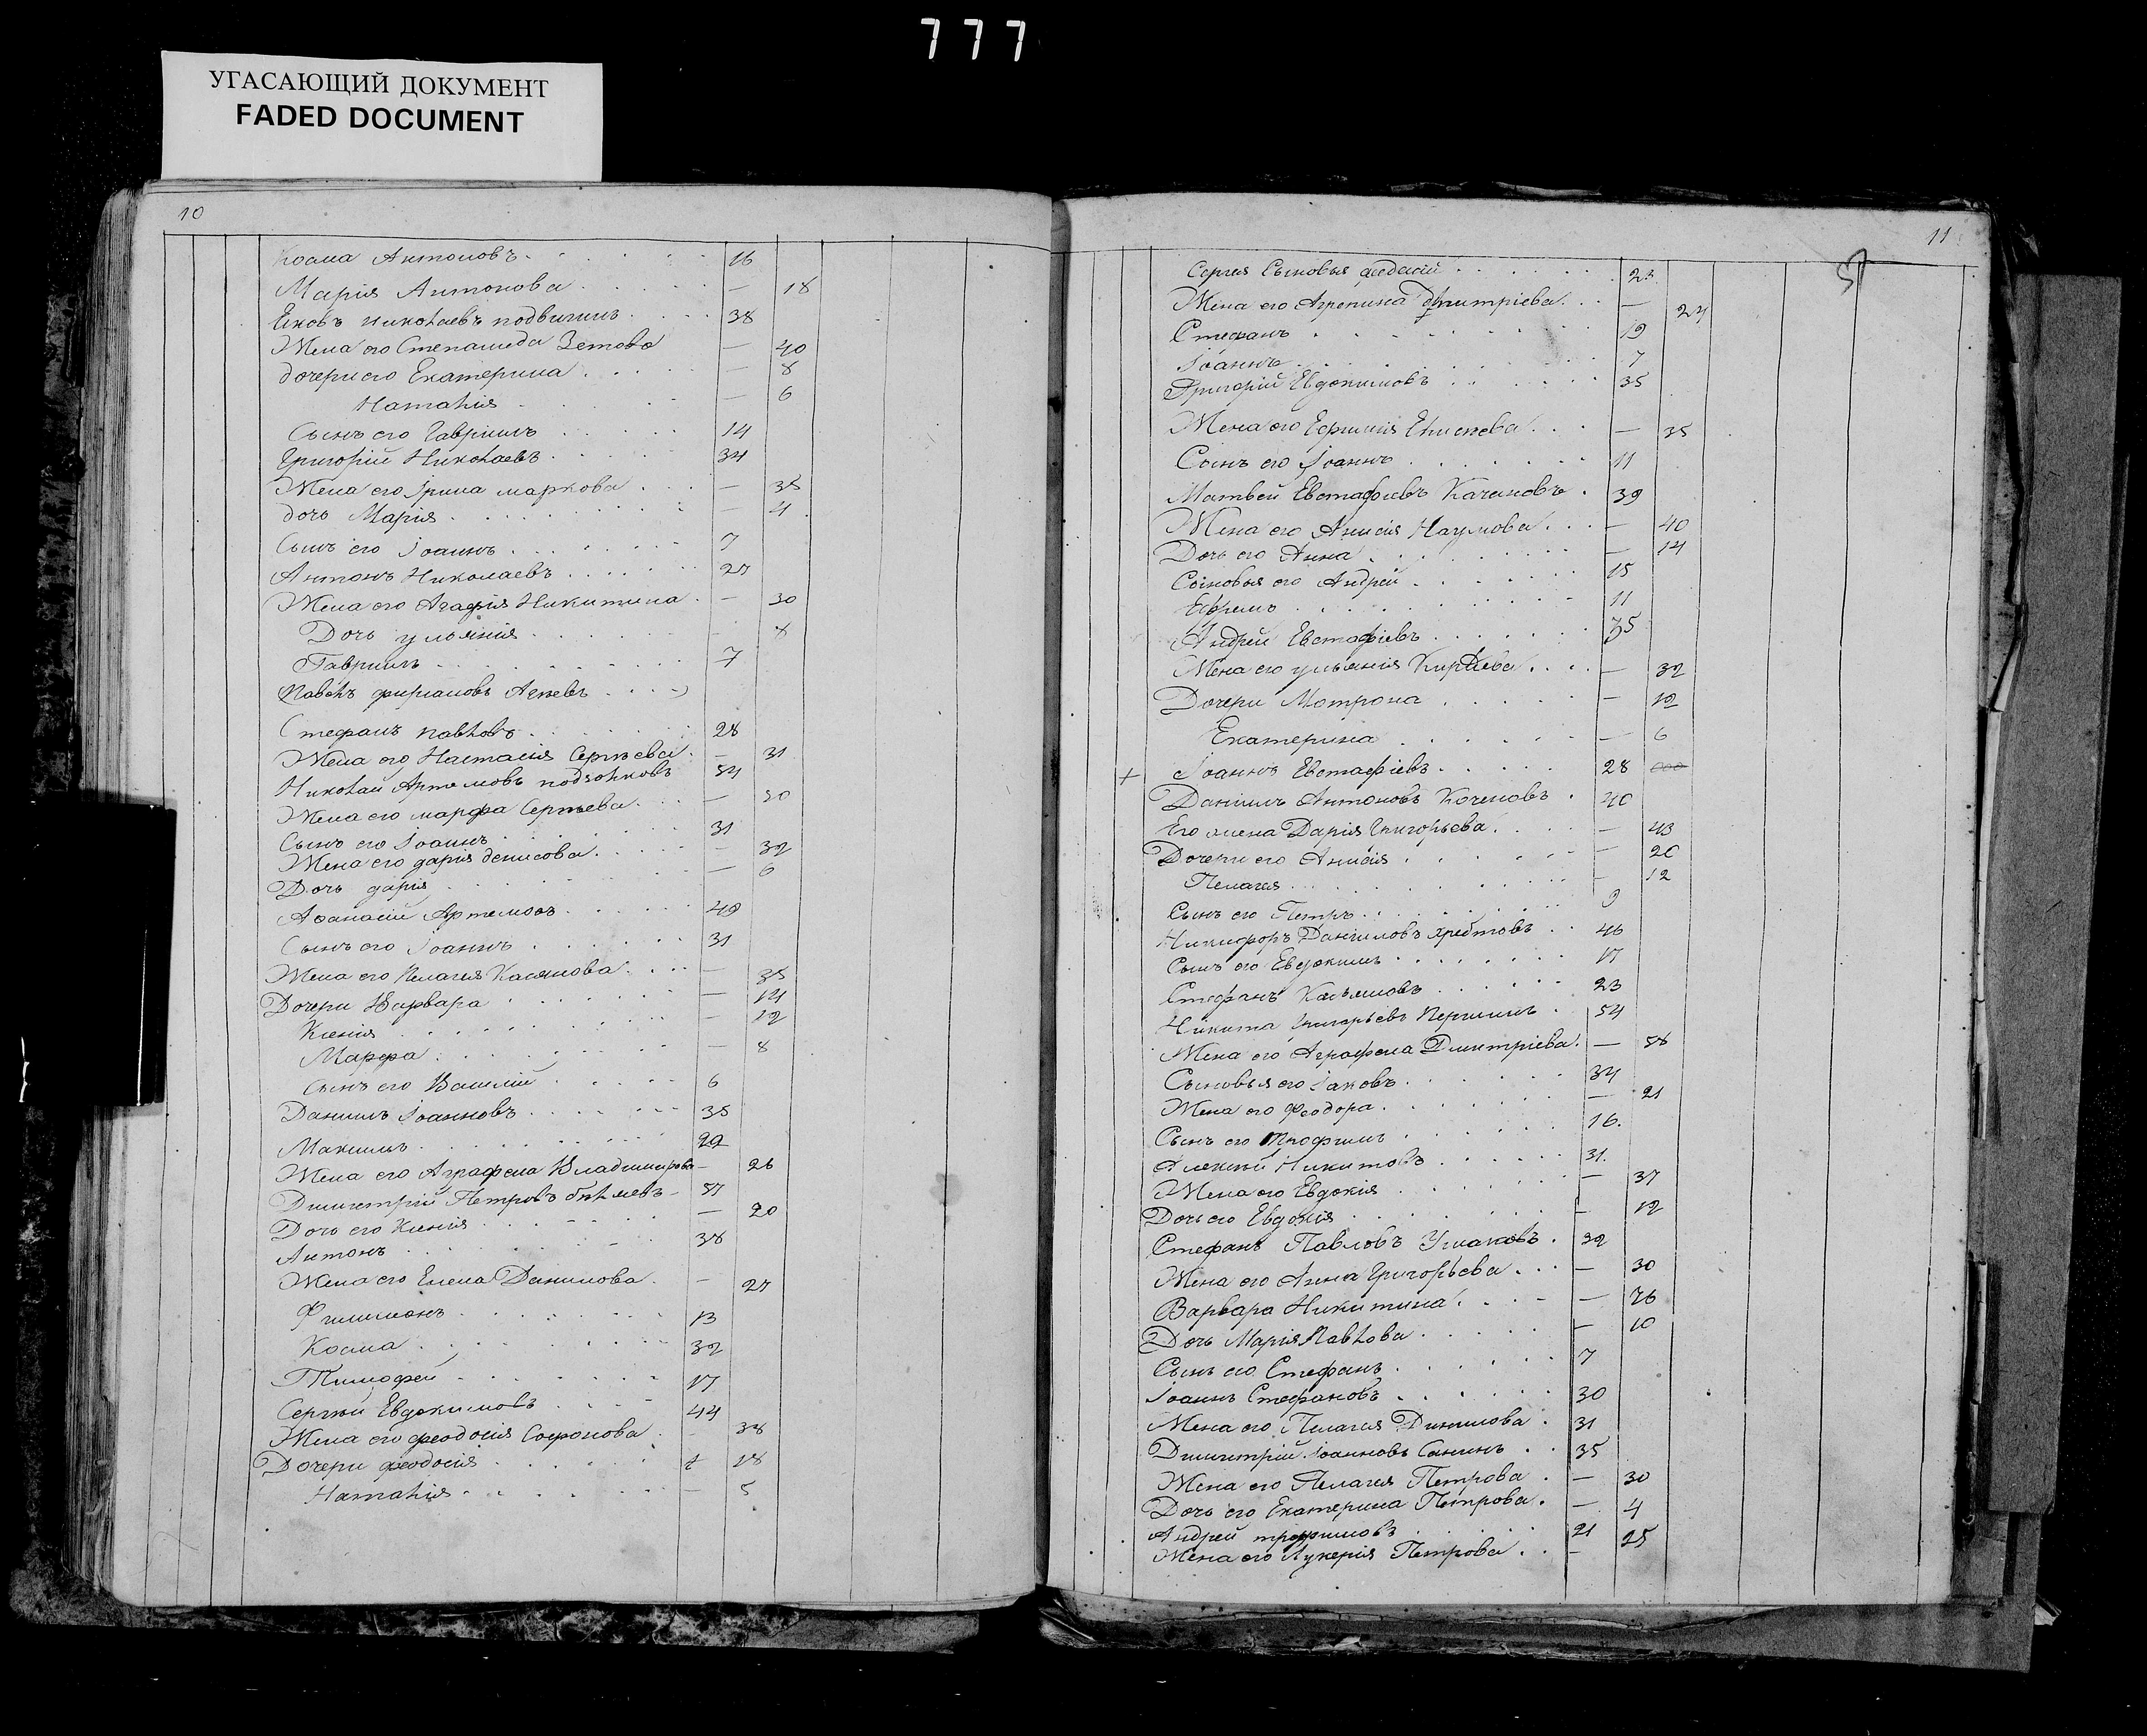 777
УГАСАЮЩИЙ ДОКУМЕНТ
FADED DOCUMENT
10
Косма Антоновъ 16
Марія Антонова — 18
николаевъ подвигинъ 38
Жена его Степанида Зетова — 40
дочери его Екатерина — 8
Наталія — 6
Сынъ его Гавріилъ 14
Григорій Николаевъ 34
Жена его Ірина маркова — 35
дочь Марія — 4
Сынъ его Іоаннъ 7
Антонъ Николаевъ 27
Жена его Агафія Никитина — 30
Дочь ульянія — 8
Гавріилъ 7
Павелъ
Стефанъ павловъ 28
Жена его Настасія Сергѣева — 31
Николай Артемовъ 54
Жена его марфа Сергѣева — 50
Сынъ его Іоаннъ 31
Жена его дарія денисова — 32
Дочь дарія — 6
Афанасій Артемовъ 49
Сынъ его Іоаннъ 31
Жена его Пелагея Касянова — 35
Дочери Варвара — 14
Ксенія — 12
Марфа — 8
Сынъ его Василій 6
Даніилъ Іоанновъ 35
Максимъ 29
Жена его Аграфена Владимирова — 26
Димитрій Петровъ 57
Дочь его Ксенія — 20
Антонъ 38
Жена его Елена Данилова — 27
Филимонъ 13
Косма 32
Тимофей 17
Сергѣй Евдокимовъ 44
Жена его феодосія Софонова — 38
Дочери феодосія 18
Наталія — 5
11
Сергея Сыновья 23
Жена его Агрепина Дмитріева — 24
Стефанъ 19
Іоаннъ 7
Григорій Евдокимовъ 35
Жена его Ефимія Елисеева — 35
Сынъ его Іоаннъ 11
Матвей Евстафіевъ Качановъ 39
Жена его Анисія Наумова — 40
Дочь его Анна — 14
Сыновья его Андрей 15
Ефремъ 11
Андрей Евстафіевъ 35
Жена его ульянія — 32
Дочери Мотрона — 12
Екатерина — 6
+ Іоаннъ Евстафіевъ 28
Даніилъ Антоновъ Коченовъ 40
Его жена Дарія Григорьева — 43
Дочери его Анисія — 20
Пелагея — 12
Сынъ его Петръ 9
Никифоръ Даніиловъ хребтовъ 46
Сынъ его Евдокимъ 17
Стефанъ Касьяновъ 23
Никита Григорьевъ Першинъ 54
Жена его Аграфена Дмитріева — 58
Сыновья его Іаковъ 34
Жена его Феодора — 21
Сынъ его Трофимъ 16
Алексѣй Никитовъ 31
Жена его Евдокія — 37
Дочь его Евдокія — 12
Стефанъ Павловъ Ушаковъ 32
Жена его Анна Григорьева — 30
Варвара Никитина — 76
Дочь Марія Павлова — 10
Сынъ его Стефанъ 7
Іоаннъ Стефановъ 30
Жена его Пелагея Данилова 31
Димитрій Іоанновъ Санинъ 35
Жена его Пелагея Петрова — 30
Дочь его Екатерина Петрова — 4
Андрей трофимовъ 21
Жена его Лукерія Петрова — 25